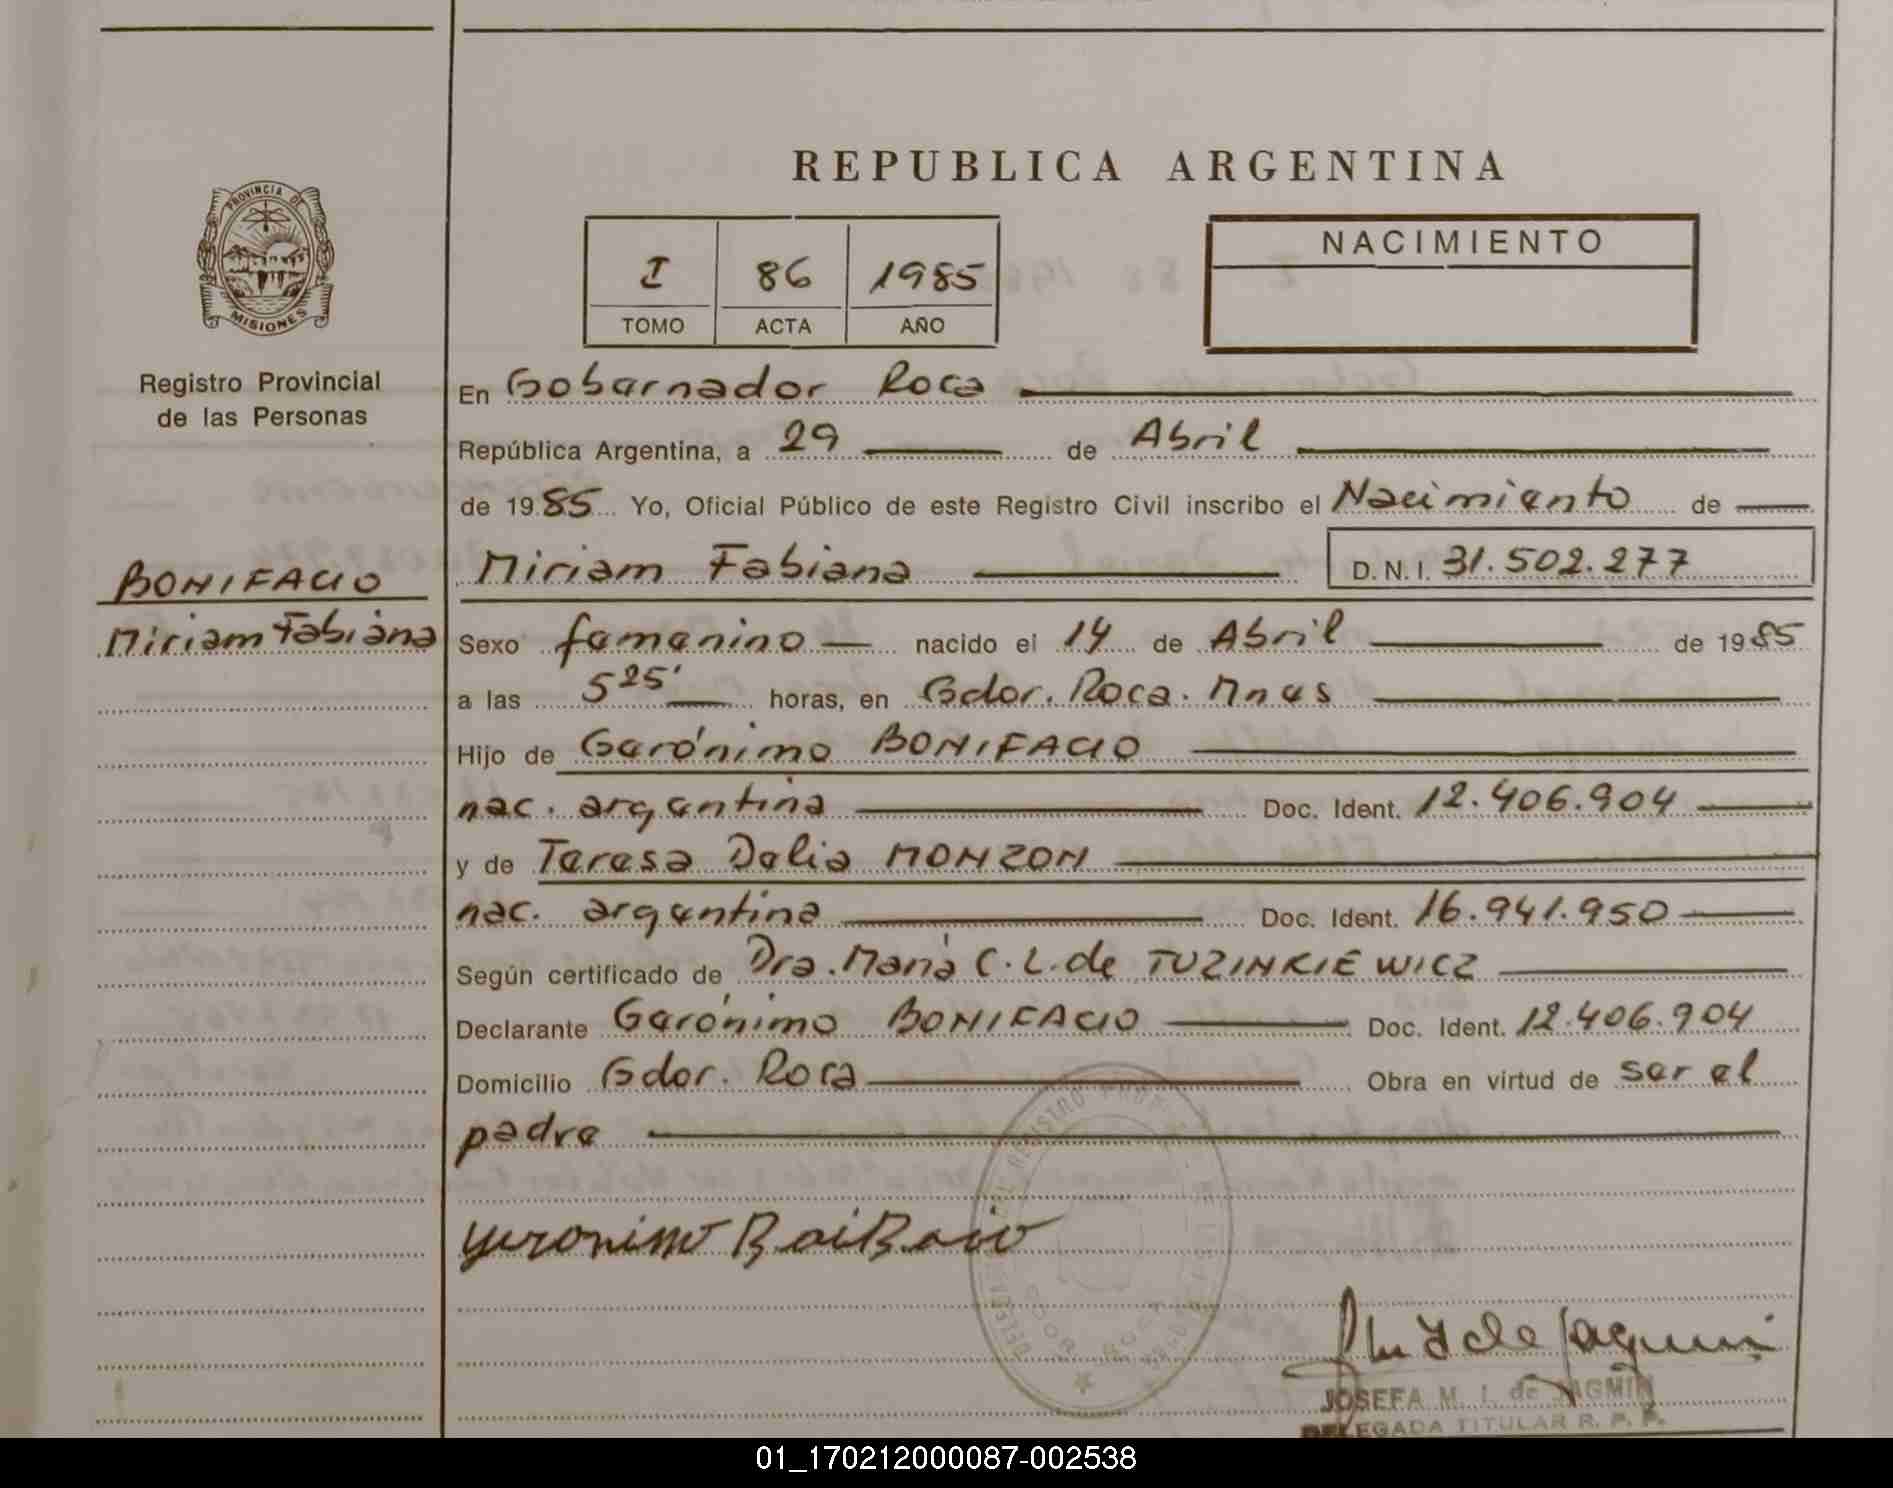 REPUBLICA ARGENTINA
PROVINCIA DE
MISIONES
Registro Provincial
de las Personas
I 86 1985
TOMO ACTA AÑO
NACIMIENTO
En Gobernador Roca
República Argentina, a 29 de Abril
de 1985 Yo, Oficial Público de este Registro Civil inscribo el Nacimiento de
BONIFACIO
Miriam Fabiana
Miriam Fabiana D.N.I. 31.502.277
Sexo femenino nacido el 14 de Abril de 1985
a las 5 25' horas, en Gdor. Roca. Mnes
Hijo de Gerónimo BONIFACIO
nac. argentina Doc. Ident. 12.406.904
y de Teresa Delia MONZON
nac. argentina Doc. Ident. 16.941.950
Según certificado de Dra. María C. L. de TUZINKIEWICZ
Declarante Gerónimo BONIFACIO Doc. Ident. 12.406.904
Domicilio Gdor. Roca Obra en virtud de ser el
padre
JOSEFA M. I. de JAGMIN
DELEGADA TITULAR R. P. P.
01_170212000087-002538